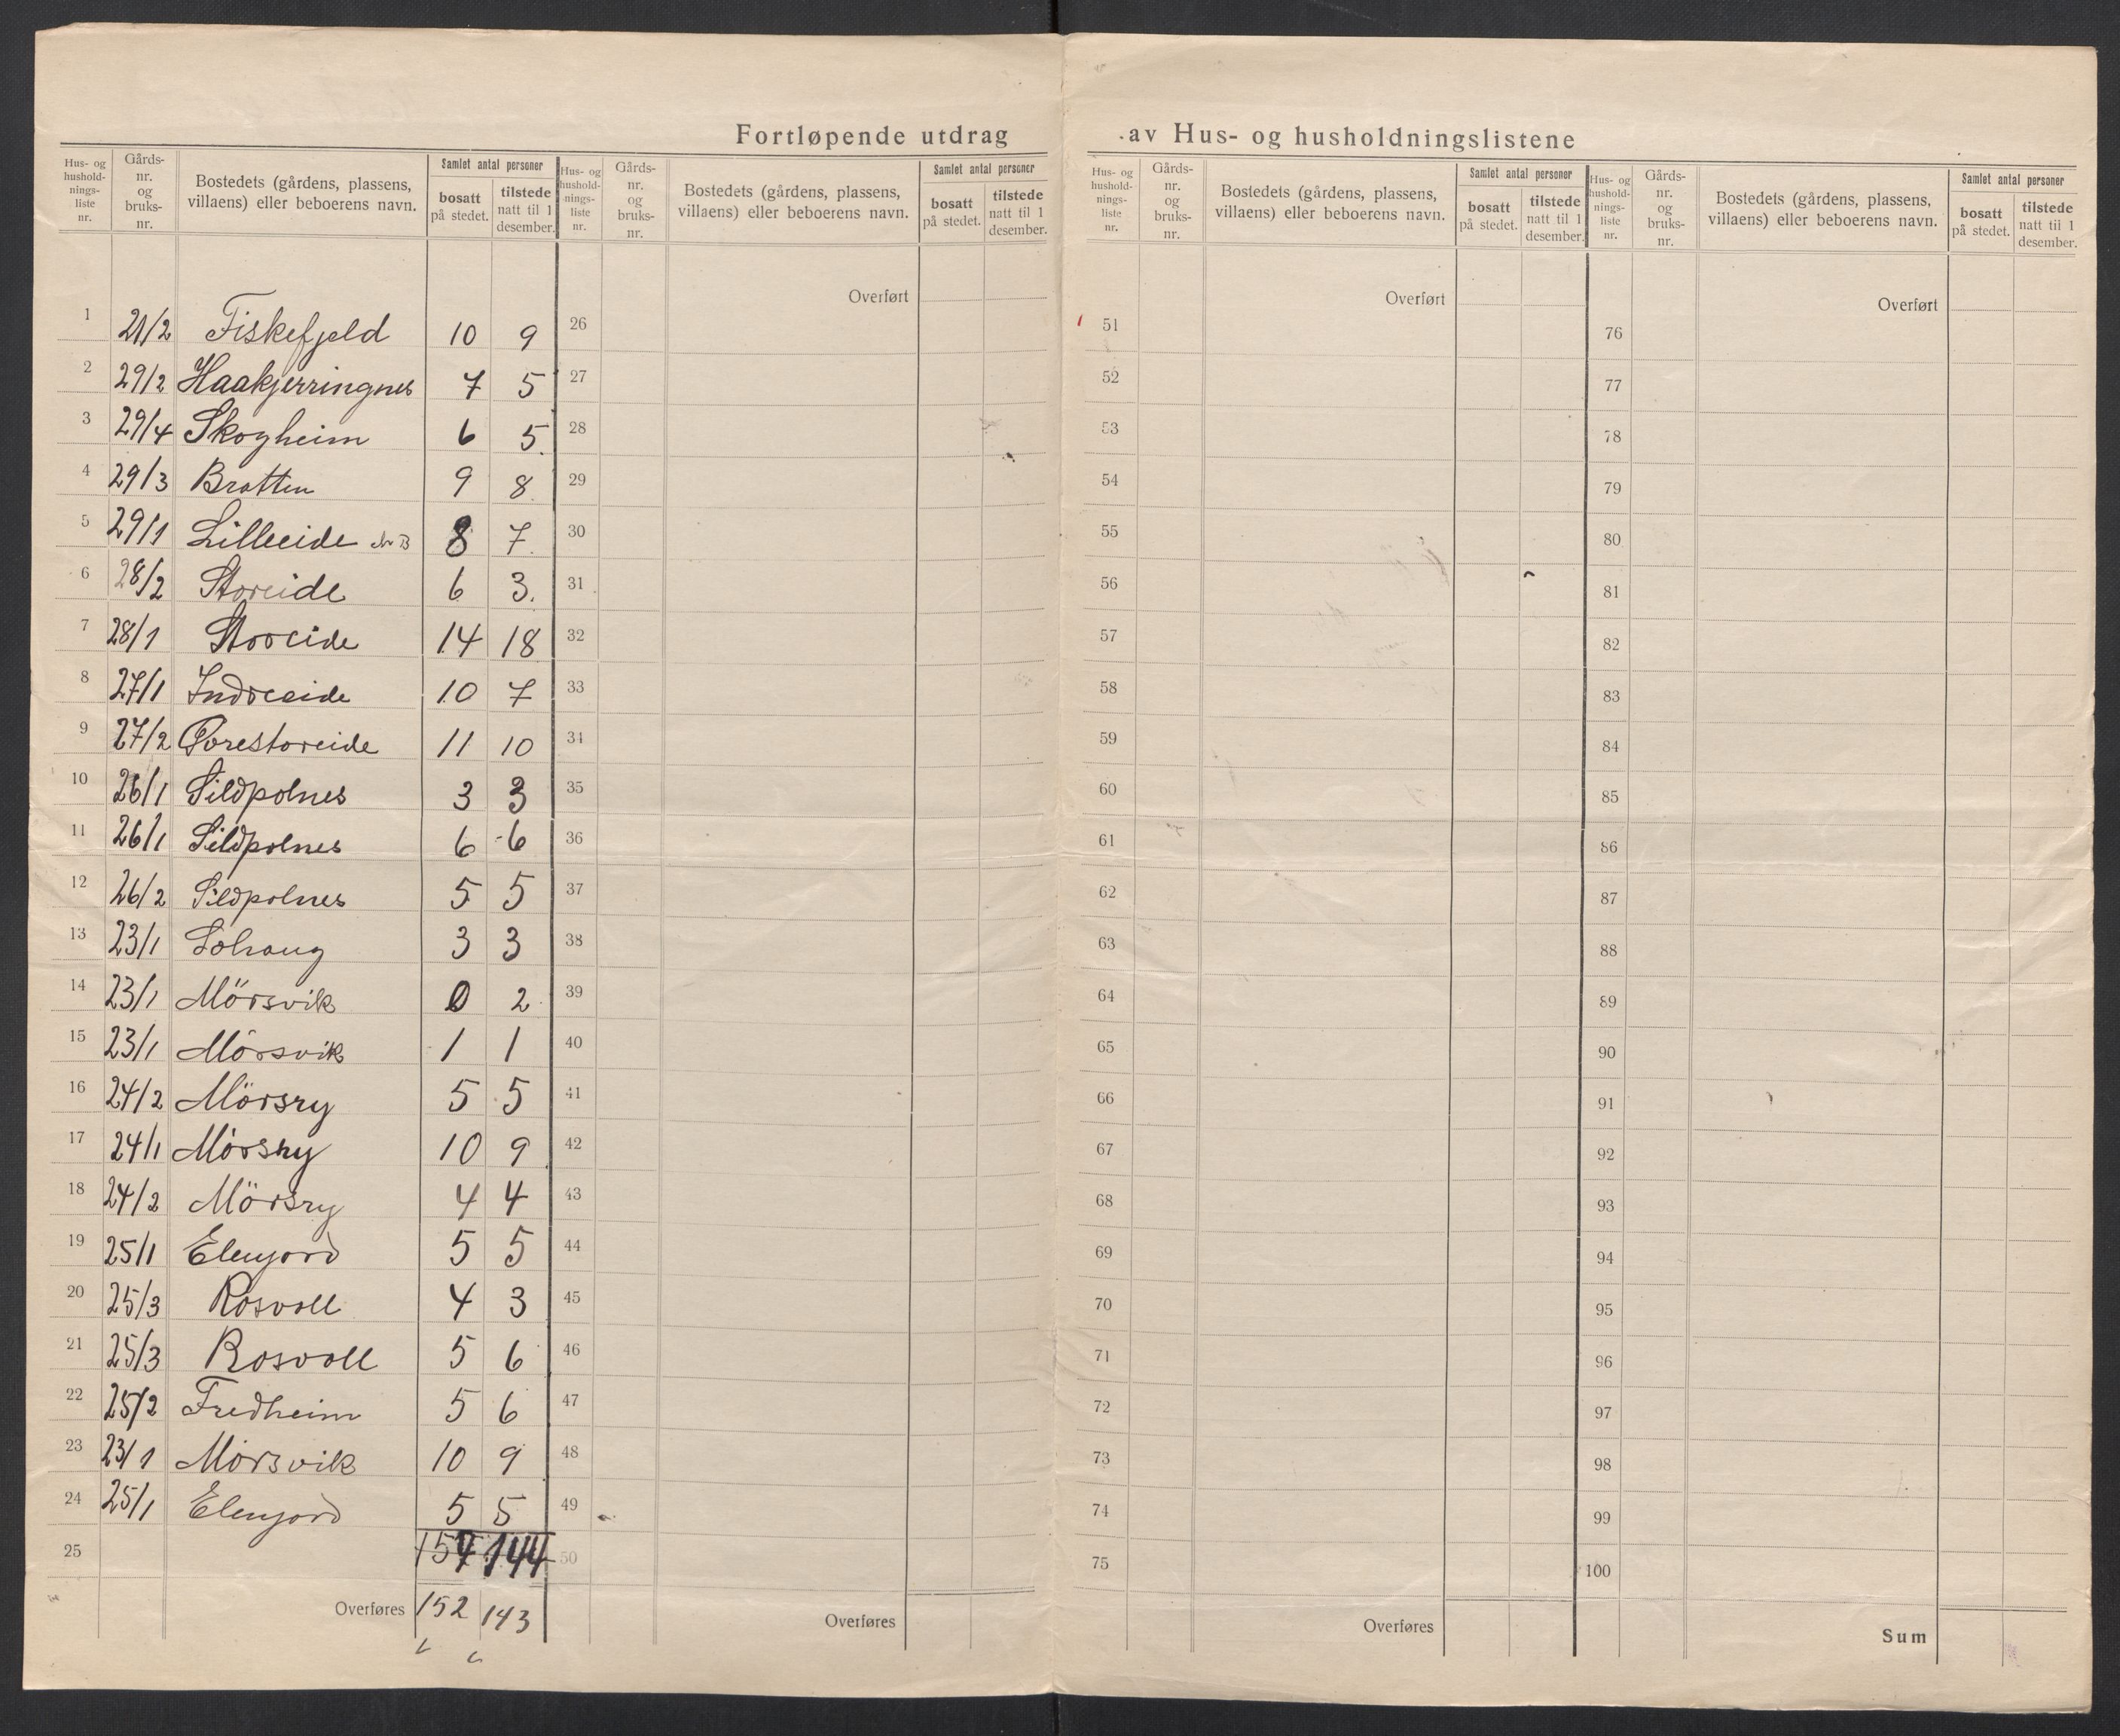 Fortløpende utdrag av Hus- og husholdningslistene
Hus- og hushold-nings-liste nr. | Gårds-nr. og bruks-nr. | Bostedets (gårdens, plassens, villaens) eller beboerens navn. | Samlet antal personer | bosatt på stedet. | tilstede natt til 1 desember.
1 21/2 Fiskefjeld 10 9
2 29/2 Haakjerringnes 7 5
3 29/4 Skogheim 6 5.
4 29/3 Bratten 9 8.
5 29/1 Lilleeide 8 7.
6 28/2 Storeide 6 3.
7 28/1 Storeide 14 18
8 27/1 Indreeide 10 7
9 27/2 Øvrestoreide 11 10
10 26/1 Sildpolnes 3 3
11 26/1 Sildpolnes 6 6
12 26/2 Sildpolnes 5 5
13 23/1 Solhaug 3 3
14 23/1 Mörsvik 0 2
15 23/1 Mörsvik 1 1
16 24/2 Mörsry 5 5
17 24/1 Mörsry 10 9
18 24/2 Mörsry 4 4
19 25/1 Elenjord 5 5
20 25/3 Rosvoll 4 3
21 25/3 Rosvoll 5 6
22 25/2 Fredheim 5 6
23 23/1 Mörsvik 10 9
24 25/1 Elenjord 5 5
25 157 144
Overføres 152 143
Hus- og hushold-nings-liste nr. | Gårds-nr. og bruks-nr. | Bostedets (gårdens, plassens, villaens) eller beboerens navn. | Samlet antal personer | bosatt på stedet. | tilstede natt til 1 desember.
Overført
26
27
28
29
30
31
32
33
34
35
36
37
38
39
40
41
42
43
44
45
46
47
48
49
50
Overføres
Hus- og hushold-nings-liste nr. | Gårds-nr. og bruks-nr. | Bostedets (gårdens, plassens, villaens) eller beboerens navn. | Samlet antal personer | bosatt på stedet. | tilstede natt til 1 desember.
Overført
51
52
53
54
55
56
57
58
59
60
61
62
63
64
65
66
67
68
69
70
71
72
73
74
75
Overføres
Hus- og hushold-nings-liste nr. | Gårds-nr. og bruks-nr. | Bostedets (gårdens, plassens, villaens) eller beboerens navn. | Samlet antal personer | bosatt på stedet. | tilstede natt til 1 desember.
Overført
76
77
78
79
80
81
82
83
84
85
86
87
88
89
90
91
92
93
94
95
96
97
98
99
100
Sum